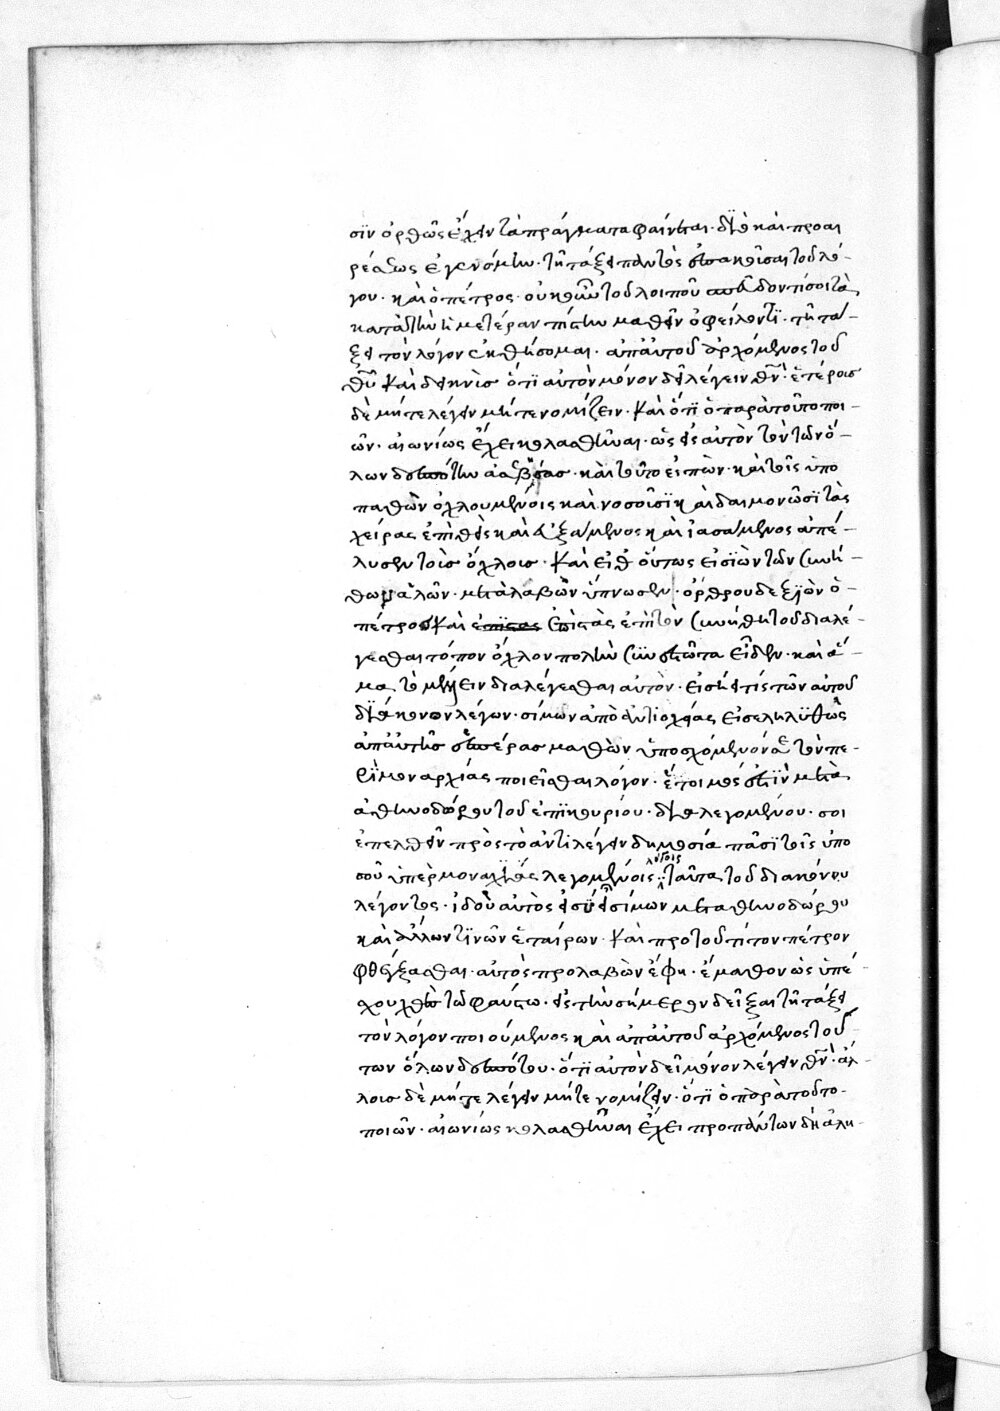 σϊν ὀρθῶς ἔχειν τὰ πράγματα φαίνεται· διὸ καὶ προαι
ρέσεως ἐγενόμην· τῇ τάξει παντὸς ἐπακοῦσαι τοῦ λό-
γου· καὶ ὁ πέτρος· οὐκοῦν τοῦ λοιποῦ δοντίσοι τὰ
κατὰ τὴν ἡμετέραν πίστιν μαθεῖν ὀφείλοντϊ· τῇ τά-
ξει τὸν λόγον ἐκθήσομαι· ἀπ' αὐτοῦ ἀρχόμενος τοῦ
θῦ καὶ δεικνὺς ὅτϊ αὐτὸν μόνον δεῖ λέγειν θν̄· ἑτέρους
δὲ μήτε λέγειν μήτε νομίζειν· καὶ ὅτϊ ὁ παρὰ τοῦτο ποι-
ῶν· αἰωνίως ἔχει κολασθῆναι· ὡς εἰς αὐτὸν τὸν τῶν ὅ-
λων δεσπότην ἀσεβήσας· καὶ τοῦτο εἰπὼν· καὶ τοῖς ὑπὸ
παθῶν ὀχλουμένοις καὶ νοσοῦσϊ καὶ δαιμονῶσϊ τὰς
χεῖρας ἐπιθεὶς καὶ εὐξάμενος καὶ ἰασάμενος ἀπέ-
λυσεν τοὺς ὄχλους· καὶ εἶθ' οὕτως εἰσϊὼν τῶν συνή-
θων ἁλῶν· μεταλαβὼν ὕπνωσεν· ὄρθρου δὲ ἐξϊὼν ὁ-
πέτρος καὶ ἐπιστὰς ἐπὶ τὸν συνήθη τοῦ διαλέ
γεσθαι τόπον ὄχλον πολὺν συνεστῶτα εἶδεν· καὶ ἅ-
μα τὸ μέλλειν διαλέγεσθαι αὐτὸν· εἰσῄει τίς τῶν αὐτοῦ
διακόνων λέγων· σίμων ἀπὸ ἀντιοχείας εἰσεληλυθὼς
ἀπ' αὐτῆς ἑσπέρας μαθὼν ὑποσχόμενόν σε τὸν πε-
ρϊ μοναρχίας ποιεῖσθαι λόγον· ἕτοιμός ἐστϊν μετὰ
ἀθηνοδώρου τοῦ ἐπϊκουρίου· διαλεγομένου· σοι
ἐπελθεῖν πρὸς τὸ ἀντιλέγειν δημοσίᾳ πᾶσϊ τοῖς ὑπὸ
σοῦ ὑπὲρ μοναρχϊας λεγομένοις λόγοις· ταῦτα τοῦ διακόνου
λέγοντος· ἰδοὺ αὐτὸς εἰσῄει σίμων μετὰ ἀθηνοδώρου
καὶ ἄλλων τινῶν ἑταίρων· καὶ πρὸ τοῦ τὶ τὸν πέτρον
φθέγξασθαι· αὐτὸς προλαβὼν ἔφη· ἔμαθον ὡς ὑπέ-
σχου χθὲς τῷ φαύστῳ· εἰς τὴν σήμερον δεῖξαι τῇ τάξει
τὸν λόγον ποιούμενος καὶ ἀπ' αὐτοῦ ἀρχόμενος τοῦ
τῶν ὅλων δεσπότου· ὅτϊ αὐτὸν δεῖ μόνον λέγειν θν̄· ἄλ-
λους δὲ μήτε λέγειν μήτε νομίζειν· ὅτϊ ὁ παρὰ τοῦτο-
ποιῶν· αἰωνίως κολασθῆναι ἔχει πρὸ πάντων δὴ ἀλη-